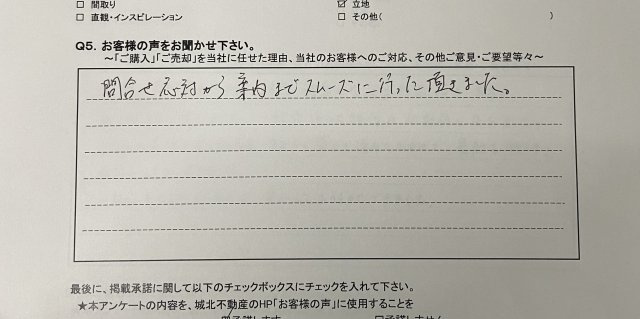 □ 間取り ☑ 立地
□ 直観・インスピレーション □ その他( )
Q5. お客様の声をお聞かせ下さい。
～「ご購入」「ご売却」を当社に任せた理由、当社のお客様へのご対応、その他ご意見・ご要望等々～
問合せ応対から案内までスムーズに行って頂きました。
最後に、掲載承諾に関して以下のチェックボックスにチェックを入れて下さい。
★本アンケートの内容を、城北不動産のHP「お客様の声」に使用することを
承諾します □承諾しません